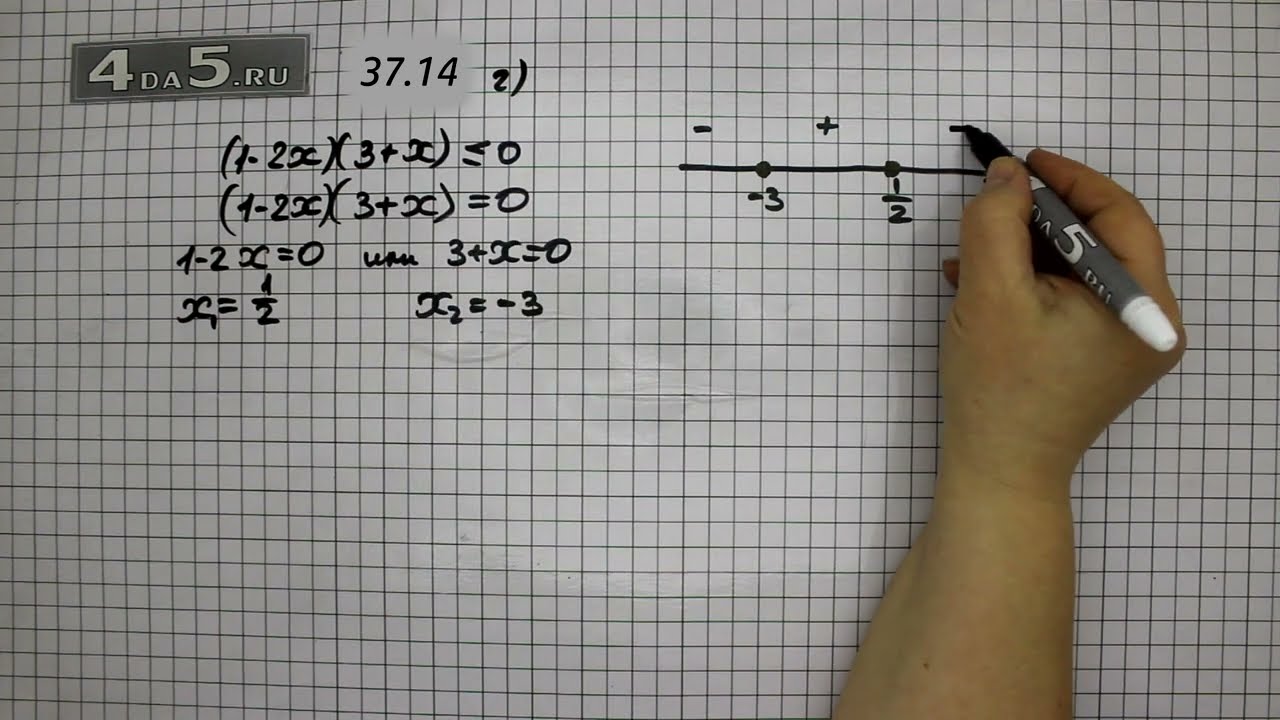 4DA5.RU 37.14 г)
(1-2x)(3+x) ≤ 0
(1-2x)(3+x) = 0
1-2x=0 или 3+x=0
x₁ = 1/2 x₂ = -3
- + -
-3 1/2
5